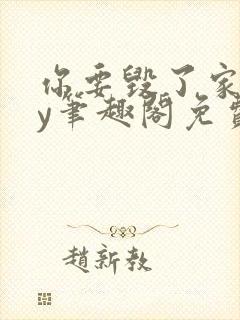 你要毁了家
y笔趣阁免
趙新教